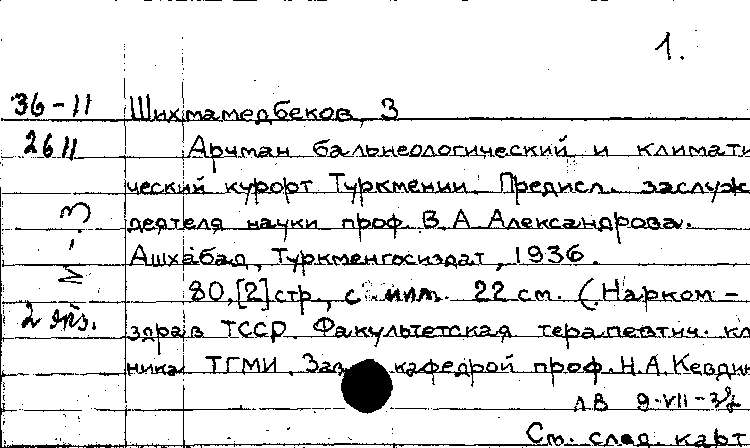 1.
36-11 Шихмамедбеков, З
2611 Арчман бальнеологический и климати
ческий курорт Туркмении. Предисл. заслуж
деятеля науки проф. В.А Александрова.
Ашхабад, Туркменгосиздат, 1936.
80,[2] стр., с илл. 22 см. (Нарком-
2 экз. здрав ТССР. Факультетская терапевтич. кл
ника ТГМИ. Зав. кафедрой проф. Н.А. Кевдин
ЛВ 9-VII-37
См. след. карт